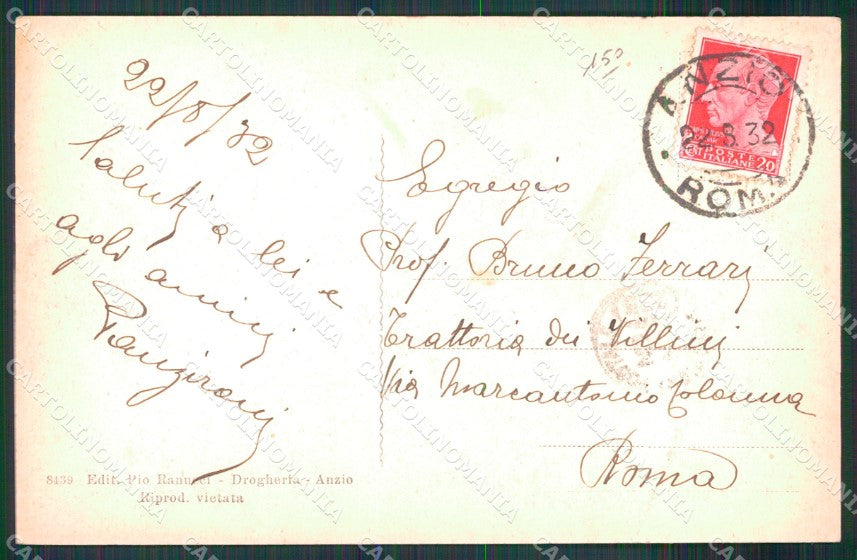 22/8/32
Saluti a lei e
agli amici
Panzironi
8439 Edit. Pio Ranucci - Drogheria - Anzio
Riprod. vietata
150
ANZIO
22.8.32
ROMA
POSTE
ITALIANE 20
Egregio
Prof. Bruno Ferrari
Trattoria dei Villini
Via Marcantonio Colonna
Roma
CARTOLINOMANIA